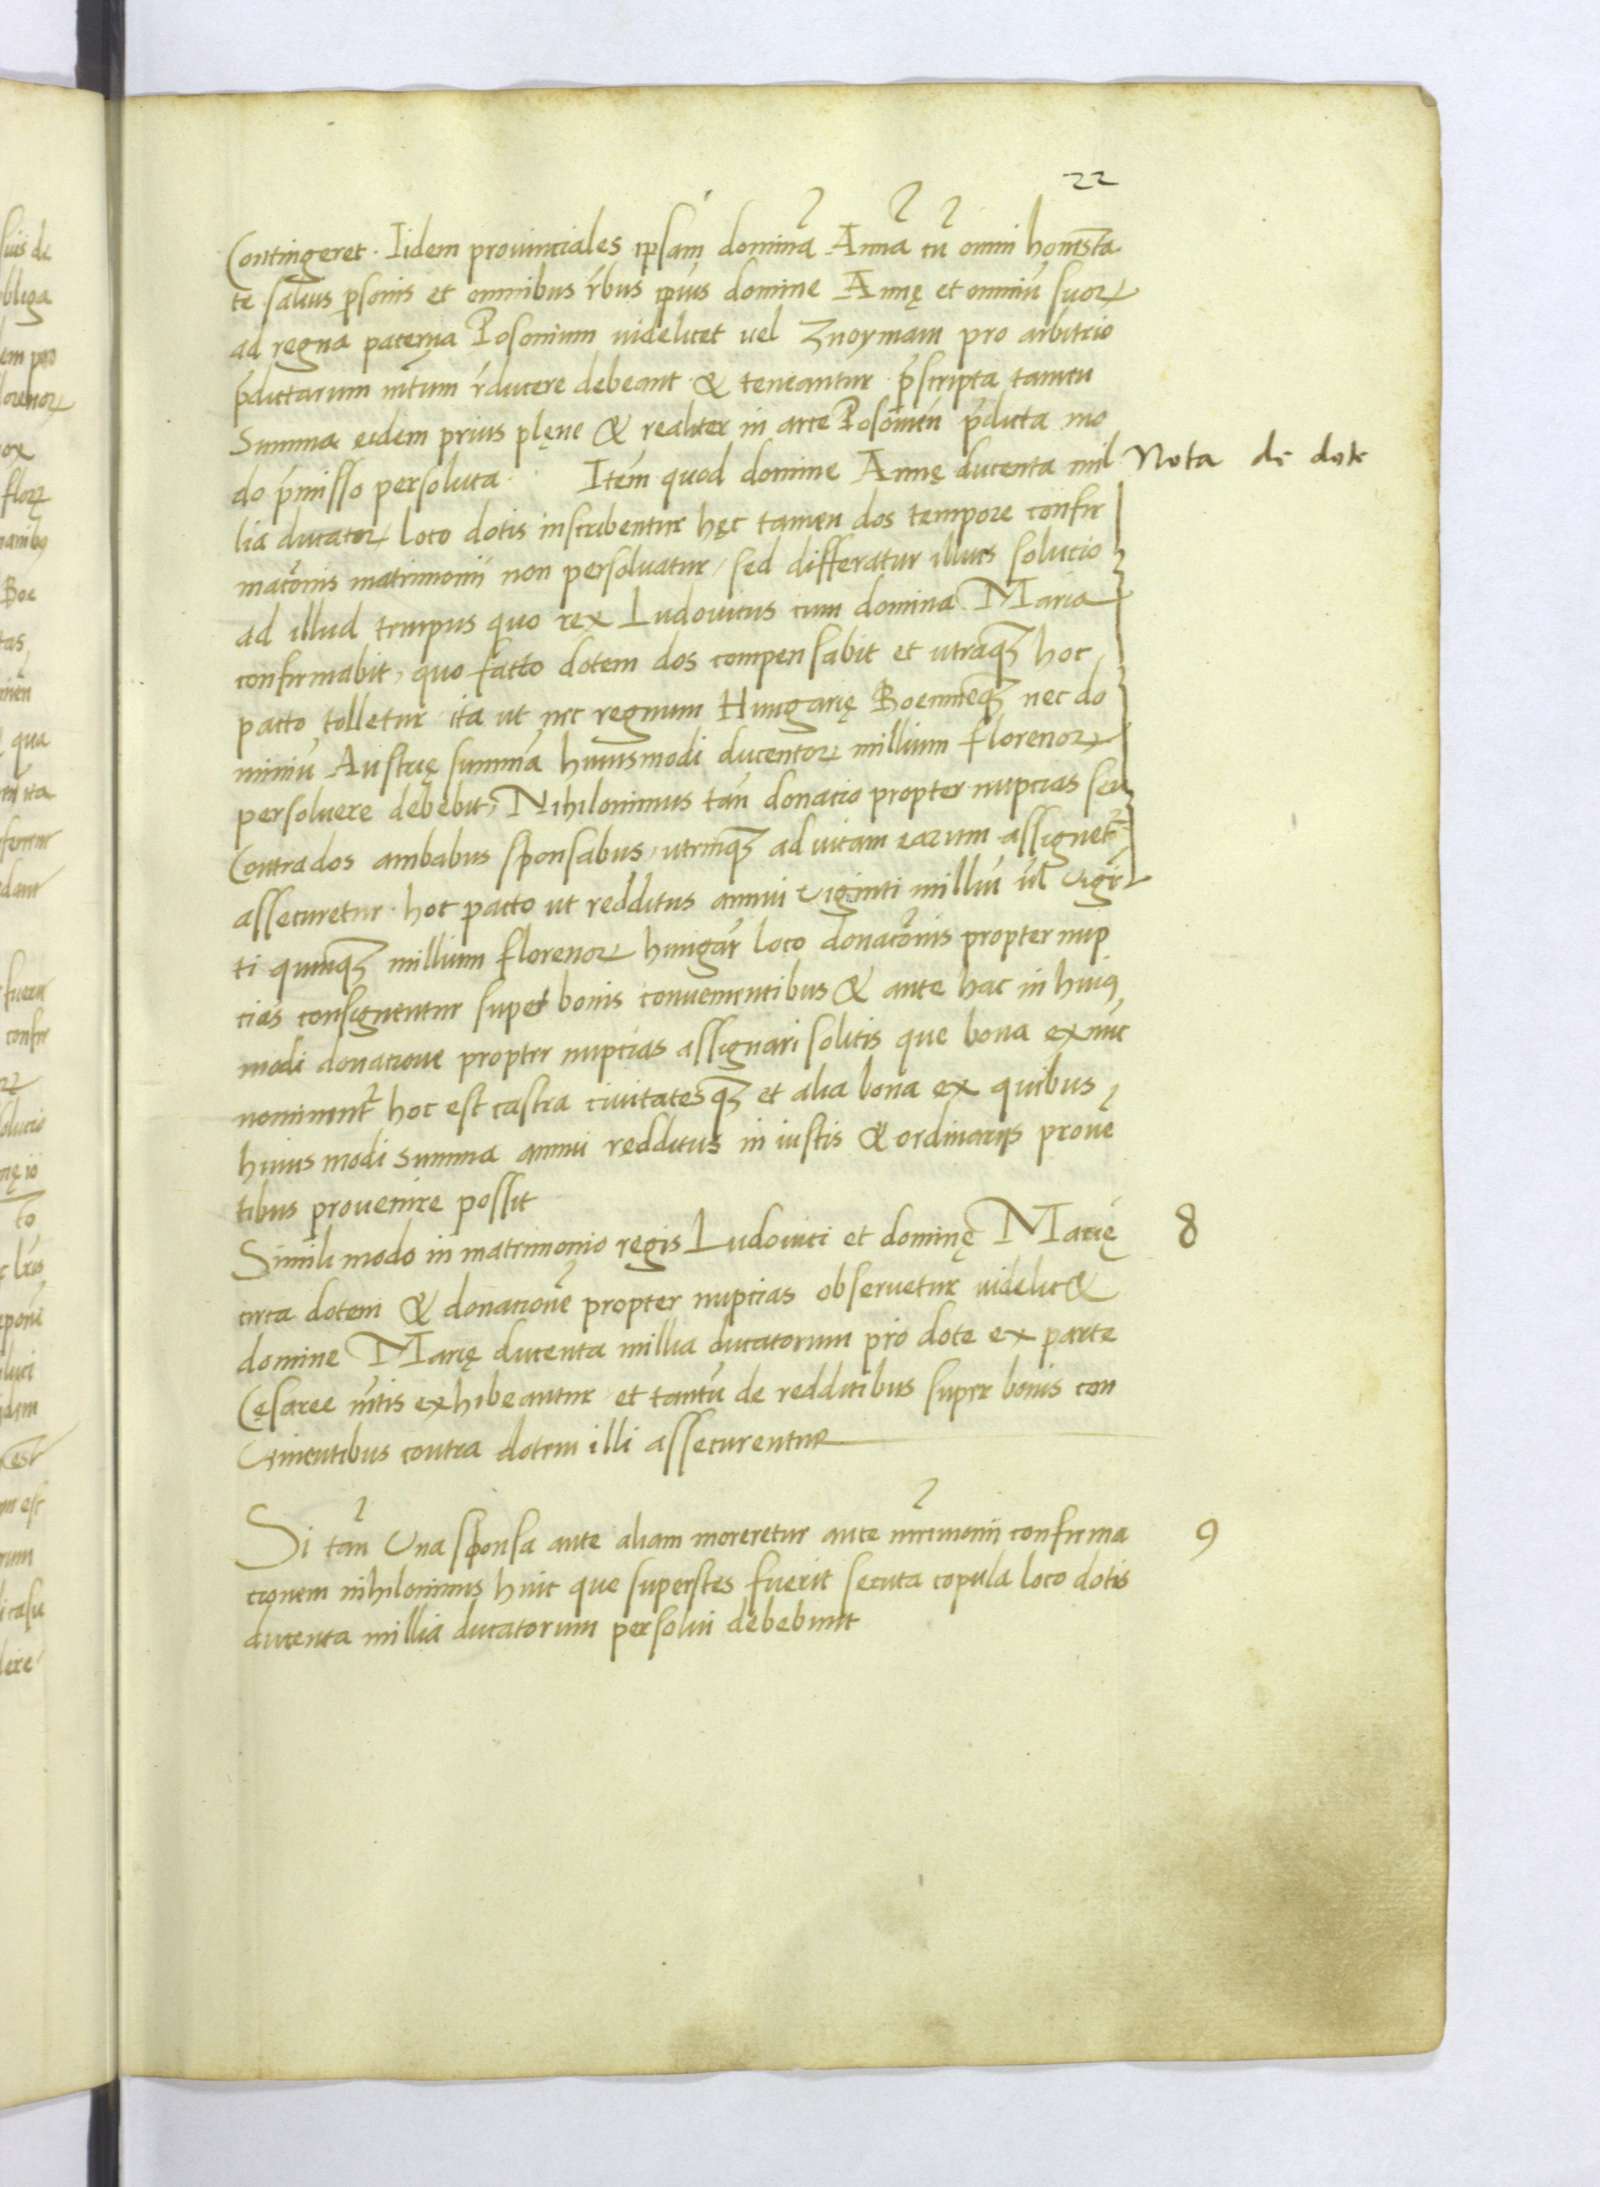 22
Contingeret. Iidem prouinciales ipsam dominã Annã cũ omni honesta
te saluis p̱sonis et omnibus r̃bus ip̃ius domine Annę et omniũ suoꝝ
ad regna paterna Posonium uidelicet uel Znoymam pro arbitrio
p̃dictarum m̃tum r̃ducere debeant & teneantur p̃scripta tamen
Summa eidem prius plęne & realiter in arce Posonien̄ p̃dicta mo
do p̃misso persoluta. Item quod domine Annę ducenta mil
Nota de dote
lia ducatoꝝ loco dotis inscribentur hęc tamen dos tempore confir
mac̃onis matrimonii non persoluatur, sed differatur illius solucio
ad illud tempus quo rex Ludouicus cum domina Maria
confirmabit, quo facto dotem dos compensabit et utraqꝫ hoc
pacto tolletur ita ut nec regnum Hungarię Boemieqꝫ nec do
miniũ Austrię summã huiusmodi ducentoꝝ millium florenoꝝ
persoluere debebit, Nihilominus tam̃ donacio propter nupcias seu
Contrados ambabus sponsabus, utrinqꝫ ad uitam earum assignet̃
assecuretur. hoc pacto ut redditus annui uiginti milliũ ul̃ uigī
ti quinqꝫ millium florenoꝝ hungar̃ loco donac̃onis propter nup
cias consignentur super bonis conuenientibus & ante hac in huiꝰ
modi donacione propter nupcias assignari solitis que bona ex nũc
nominent̃ hoc est castra ciuitatesqꝫ et alia bona ex quibus
huius modi summa annui redditus in iustis & ordinariis proue
tibus prouenire possit
Simili modo in matrimonio regis Ludouici et dominę Marię
8
circa dotem & donacionẽ propter nupcias obseruetur uidelic&
domine Marię ducenta millia ducatorum pro dote ex parte
Cęsaree m̃tis exhibeantur et tantũ de redditibus super bonis con
uenientibus contra dotem illi assecurentur
Si tam̃ una sponsa ante aliam moreretur ante m̃rimonii confirma
9
cionem nihilominus huic que superstes fuerit secuta copula loco dotis
ducenta millia ducatorum persolui debebunt